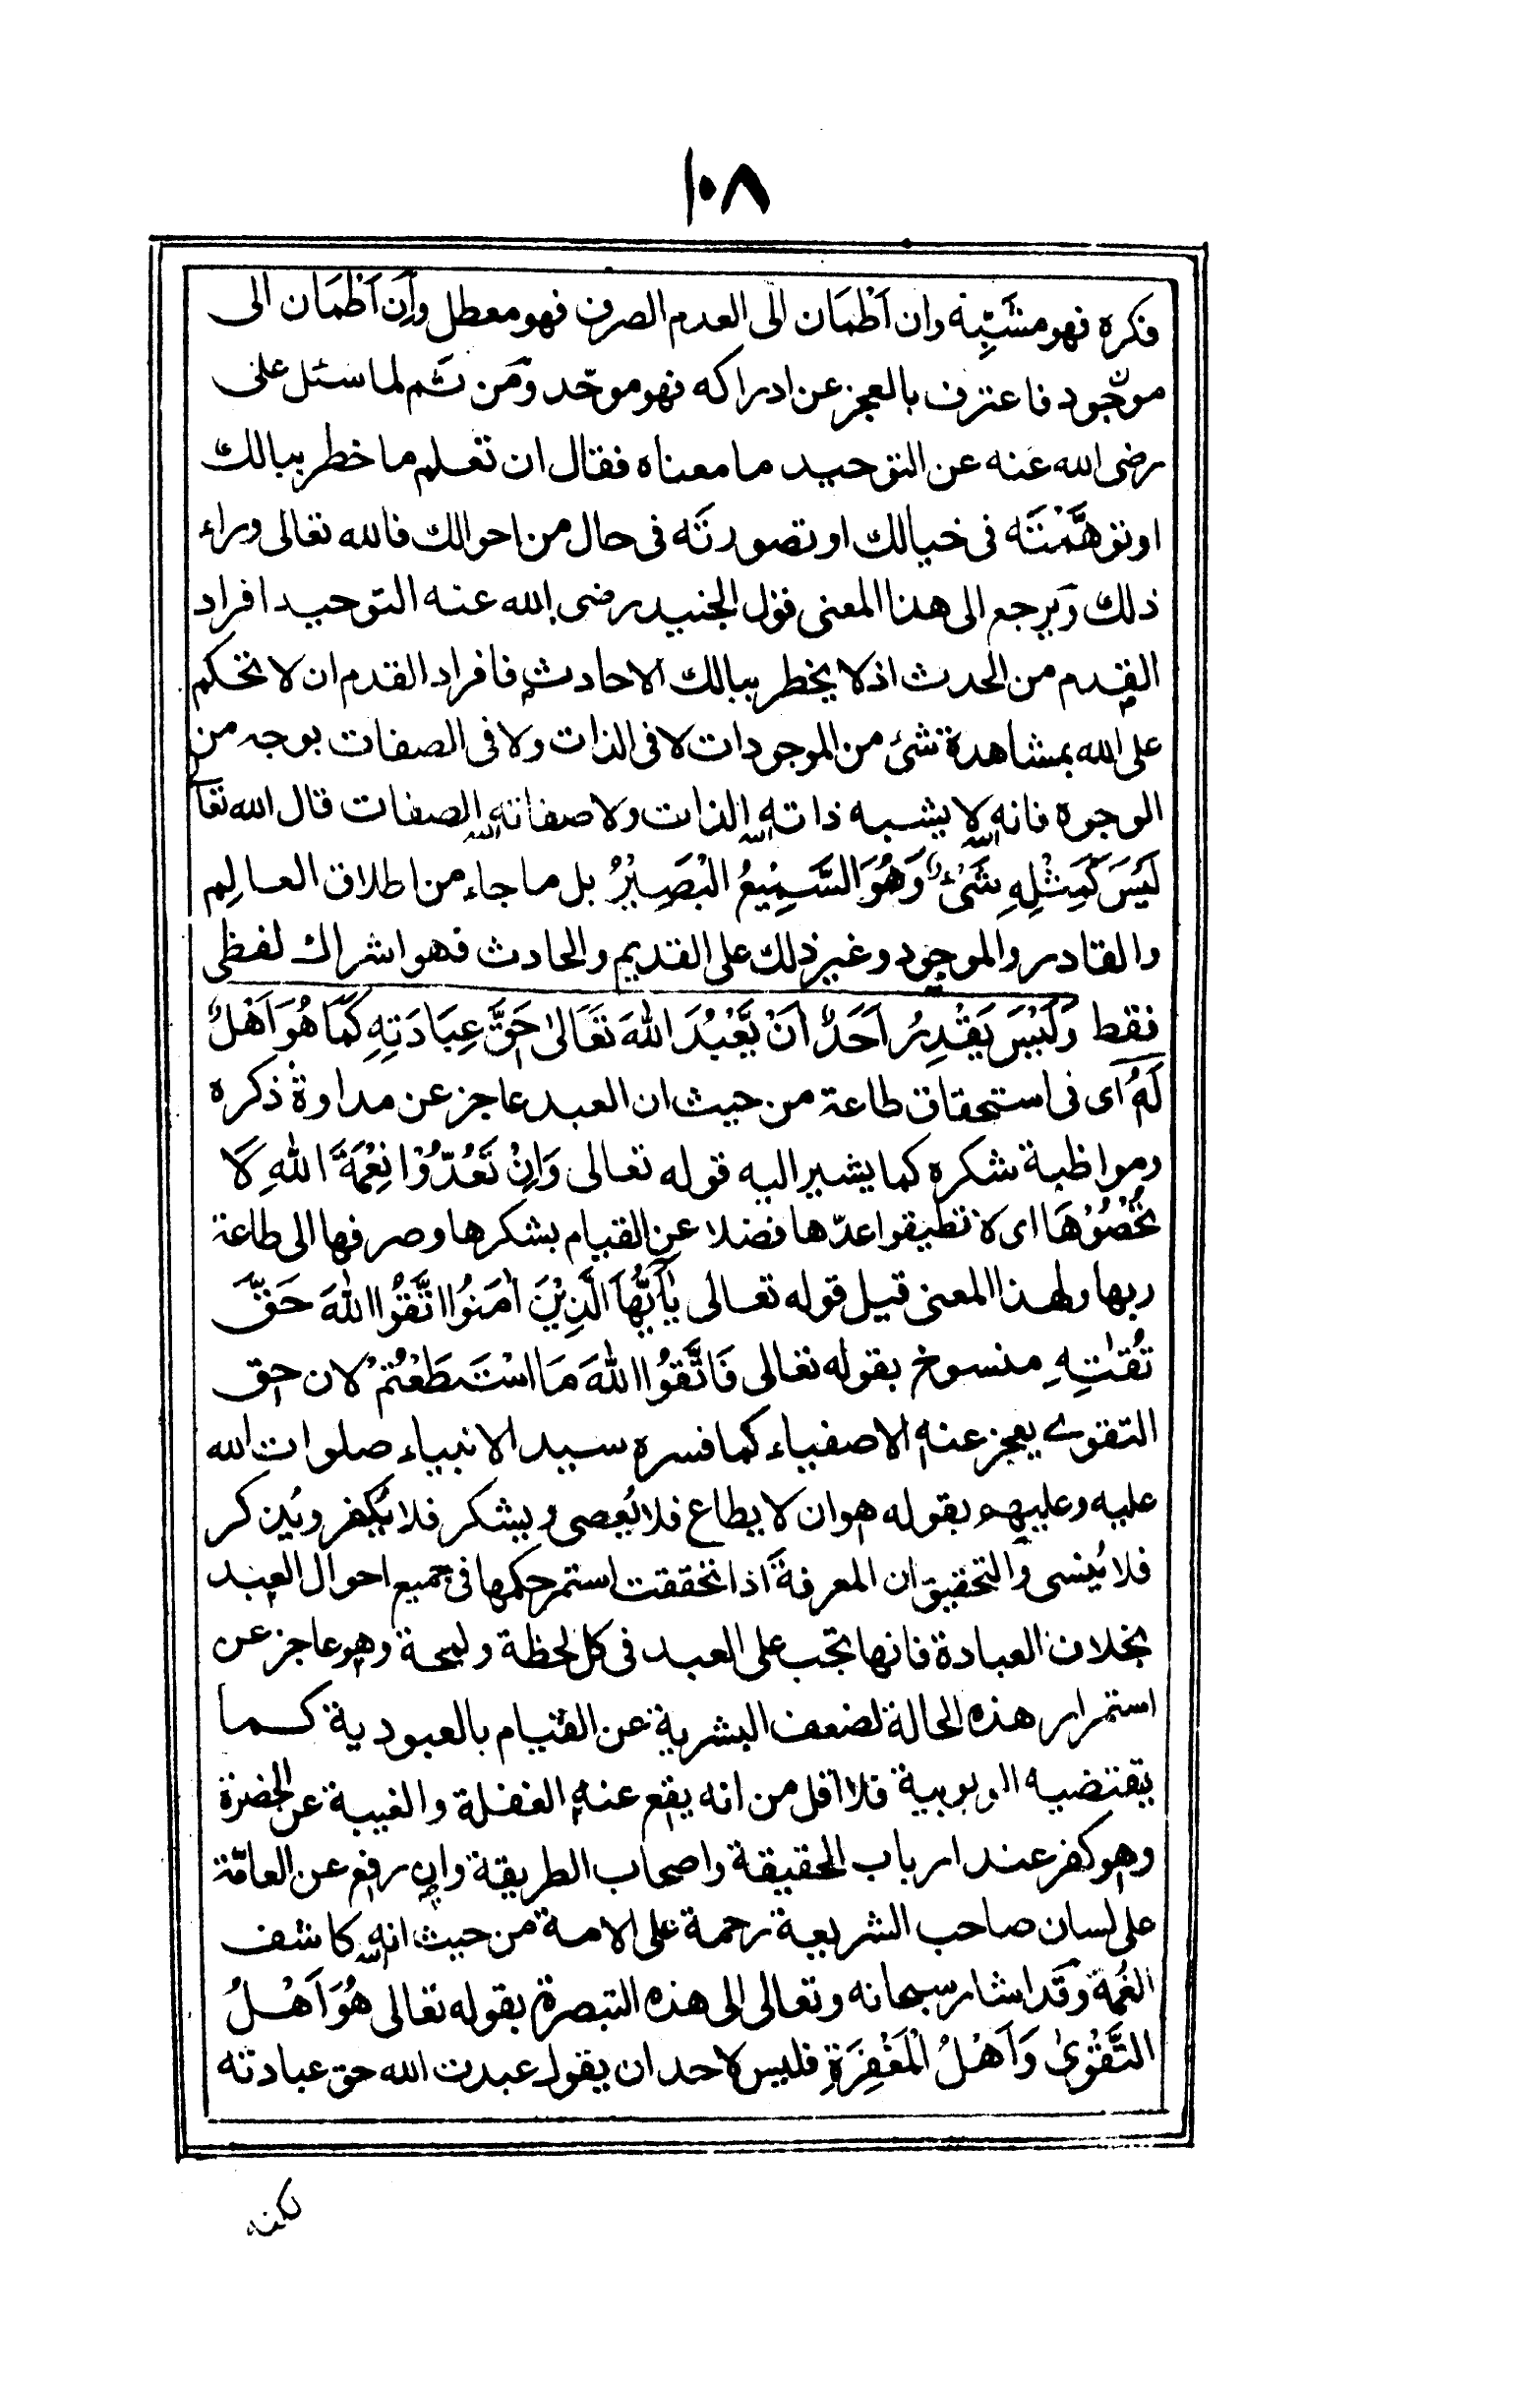 ١٠٨
فكره فهو مشَبِّه وان اَطْمَان الى العدم الصرف فهو معطل وَاِن اَطْمَان الى
موجود فاعترف بالعجز عن ادراكه فهو موحّد ومَن ثَم لما سئل على
رضى الله عنه عن التوحيد ما معناه فقال ان تعلم ما خطر ببالك
او توهَّمْتَه فى خيالك او تصورتَه فى حال من احوالك فالله تعالى وراء
ذلك وَيرجع الى هذا المعنى قول الجنيد رضى الله عنه التوحيد افراد
القدم من الحدث اذ لا يخطر ببالك الا حادث فافراد القدم ان لا تحكم
على الله بمشاهدة شئ من الموجودات لا فى الذات ولا فى الصفات بوجه من
الوجوه فانه لا يشبه ذاته الذات ولا صفاته الصفات قال الله تعا
لَيْسَ كَمِثْلِهِ شَىْءٌ وَهُوَ السَّمِيْعُ الْبَصِيْرُ بل ما جاء من اطلاق العالِم
والقادر والموجود وغير ذلك على القديم والحادث فهو اشراك لفظى
فقط وَلَيْسَ يَقْدِرُ اَحَدٌ اَنْ يَّعْبُدَ اللهَ تَعَالىٰ حَقَّ عِبَادَتِهِ كَمَا هُوَ اَهْلٌ
لَهُ اى فى استحقاق طاعة من حيث ان العبد عاجز عن مداوة ذكره
ومواظبة شكره كما يشير اليه قوله تعالى وَاِنْ تَعُدُّوْا نِعْمَةَ اللهِ لَا
تُحْصُوْهَا اى لا تطيقوا عدّها فضلا عن القيام بشكرها وصرفها الى طاعة
ربها ولهذا المعنى قيل قوله تعالى يٰاَيُّهَا الَّذِيْنَ اٰمَنُوا اتَّقُوا اللهَ حَقَّ
تُقٰتِهِ منسوخ بقوله تعالى فَاتَّقُوا اللهَ مَا اسْتَطَعْتُمْ لان حق
التقوے يعجز عنه الاصفياء كما فسره سيد الانبياء صلوات الله
عليه وعليهم بقوله هو ان لا يطاع فلا يُعصى ويشكر فلا يُكفر ويُذكر
فلا يُنسى والتحقيق ان المعرفة اذا تحققت استمر حكمها فى جميع احوال العبد
بخلاف العبادة فانها تجب على العبد فى كل لحظة ولمحة وهو عاجز عن
استمرار هذه الحالة لضعف البشرية عن القيام بالعبودية كما
يقتضيه الربوبية فلا اقل من انه يقع عنه الغفلة والغيبة عن الحضرة
وهو كفر عند ارباب الحقيقة واصحاب الطريقة وان رفع عن العامّة
على لسان صاحب الشريعة رحمة على الامة من حيث انه كاشف
الغُمة وقَد اشار سبحانه وتعالى الى هذه التبصرة بقوله تعالى هُوَ اَهْلُ
التَّقْوٰى وَاَهْلُ الْمَغْفِرَةِ فليس لاحد ان يقول عبدت الله حق عبادته
لكنه